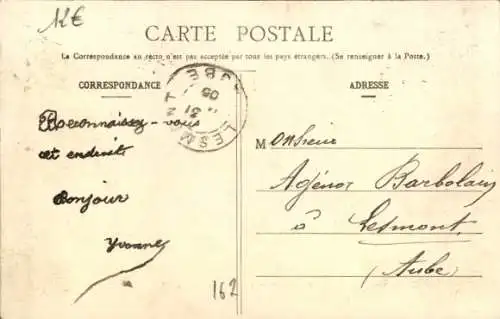 12€
CARTE POSTALE
La Correspondance au recto n'est pas acceptée par tous les pays étrangers. (Se renseigner à la Poste.)
CORRESPONDANCE
ADRESSE
LESM
AUBE
21
05
Reconnaissez-vous
cet endroit
Bonjour
Yvonne
Monsieur
Agénor Barbolain
à Lesmont
(Aube)
162